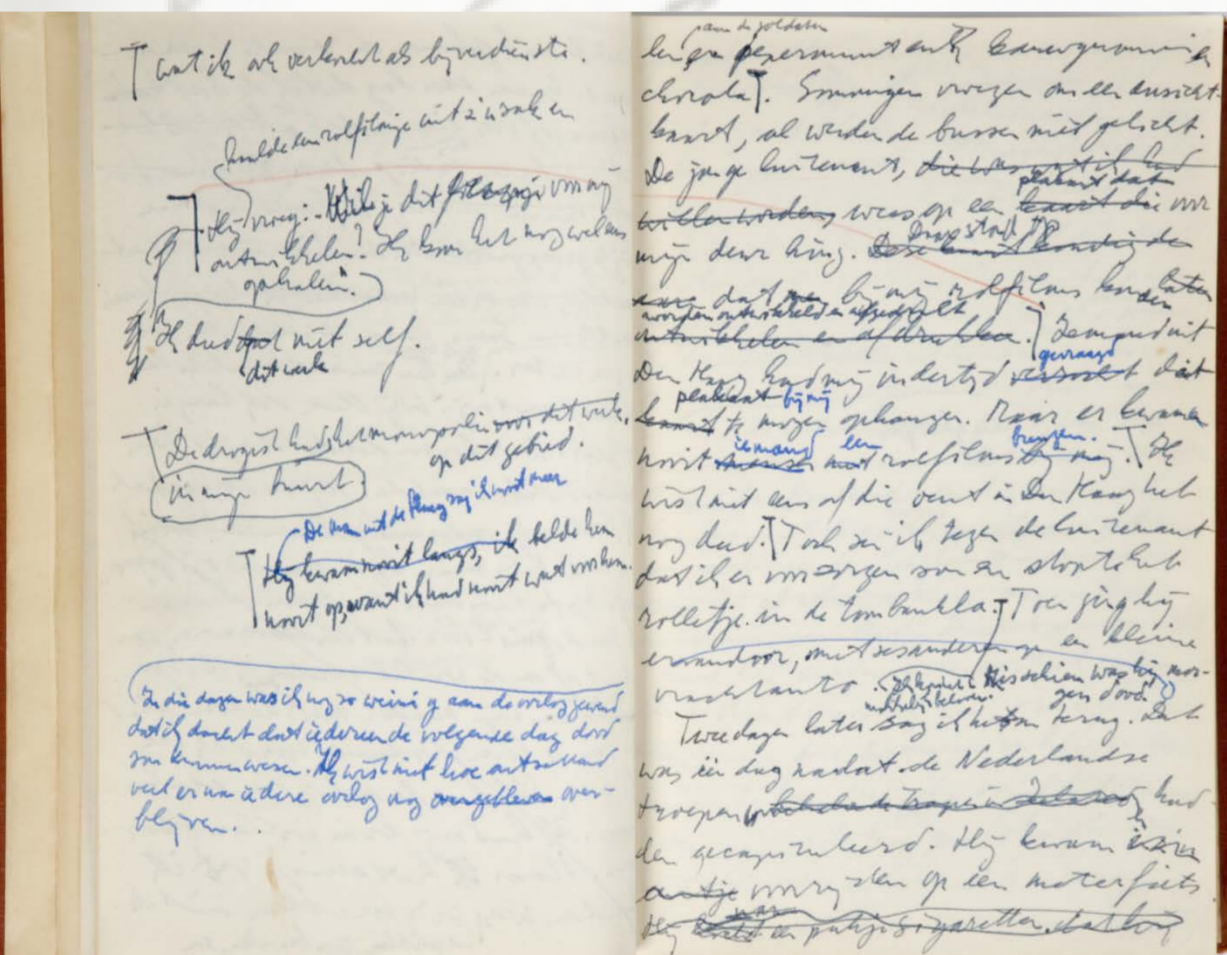 wat ik ook verkocht als bijverdienste.
haalde een rolfilmpje uit zijn zak en
Hij vroeg: Wil je dit voor mij
ontwikkelen? Ik kom het nog wel eens
ophalen".
Ik deed dat niet zelf.
dit werk
De drogist had het monopolie voor dit werk.
op dit gebied.
in mijn buurt.
De man uit Den Haag zag ik nooit meer
Hij kwam nooit langs, ik belde hem
nooit op, want ik had nooit wat voor hem.
In die dagen was ik nog zo weinig aan de oorlog gewend
dat ik dacht dat iedereen de volgende dag dood
zou kunnen wezen. Ik wist niet hoe ontzettend
veel er na iedere oorlog nog overgebleven over-
blijven.
aan de soldaten
len en pepermunt en kauwgummi en
chocola. Sommigen vroegen om een ansicht-
kaart, al werden de bussen niet gelicht.
De jonge luitenant, die was wat ik had
plakkaat dat
willen worden, wees op een kaart die voor
mijn deur hing. Deze kaart kondigde
aan dat men bij mij rolfilms kon laten
worden ontwikkeld en afgedrukt
ontwikkelen en afdrukken. Iemand uit
gevraagd
Den Haag had mij indertijd verzocht dat
plakkaat bij mij
kaart te mogen ophangen. Maar er kwamen
iemand een brengen.
nooit mensen met rolfilms bij mij. Ik
wist niet eens of die vent in Den Haag het
nog deed. Toch zei ik tegen de luitenant
dat ik er voor zorgen zou en stopte het
rolletje in de toonbankla. Toen ging hij
ervandoor, met zes anderen op een kleine
vrachtauto. Misschien was hij mor-
gen dood.
Twee dagen later zag ik hem terug. Dat
was één dag nadat de Nederlandse
troepen had-
den gecapituleerd. Hij kwam in zijn
eentje voorrijden op een motorfiets
Hij een pakje sigaretten, dat hij